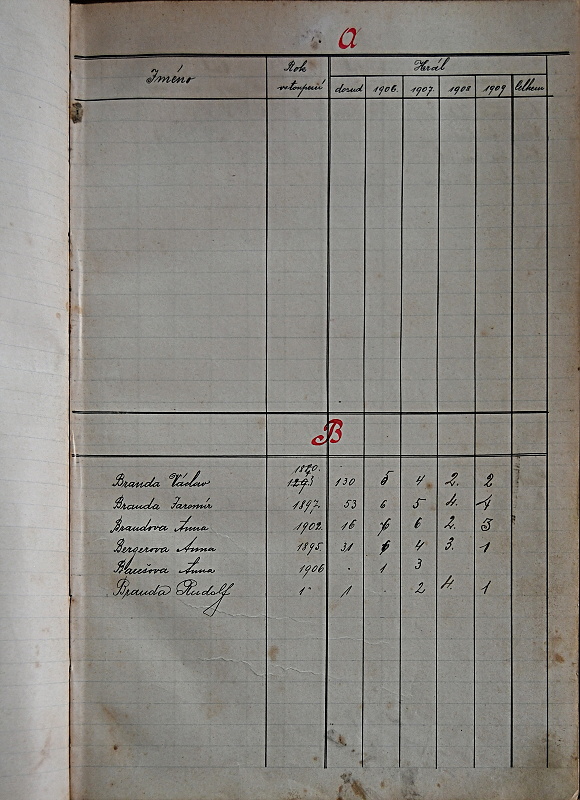 A
Jméno Rok vstoupení Hrál
dosud 1906. 1907. 1908 1909 Celkem
B
1870.
Branda Václav 130 5 4 2. 2
Branda Jaromír 1897. 53 6 5 4. 4
Brandova Anna 1902. 16 6 6 2. 3
Bergerova Anna 1895. 31 6 4 3. 1
Anna 1906 . 1 3
Branda Rudolf 1" 1 . 2 4. 1